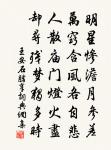 明星慘澹月參差
萬竅含風各自悲
人散廟門燈火盡
却尋殘夢獨多時
王安石